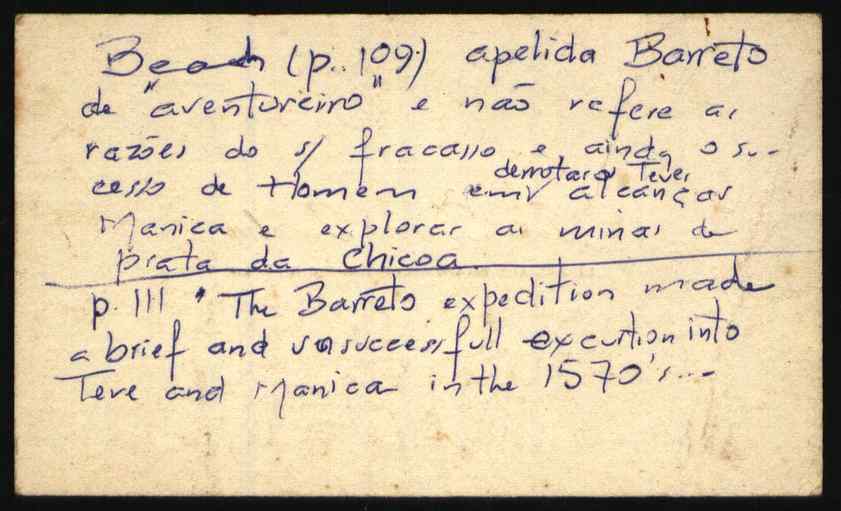 Beach (p. 109) apelida Barreto
de "aventureiro" e não refere as
razões do s/ fracasso e ainda o su-
cesso de Homem em derrotar o Teve, alcançar
Manica e explorar as minas de
prata da Chicoa.
p. 111 " The Barreto expedition made
a brief and unsuccessfull excurtion into
Teve and Manica in the 1570's...